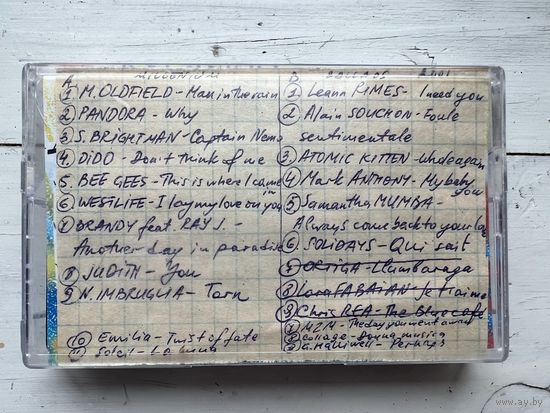 A MILLENIUM
① M. OLDFIELD - Man in the rain
② PANDORA - Why
③ S. BRIGHTMAN - Captain Nemo
④ DIDO - Don't think of me
5. BEE GEES - This is where I came in
⑥ WESTLIFE - I lay my love on you
⑦ BRANDY feat RAY J. -
Another day in paradise
⑧ JUDITH - You
⑨ N. IMBRUGLIA - Torn
⑩ Emilia - Twist of fate
⑪ Soleil - La luna
B BALLADS 2001
① Leann RIMES - I need you
② Alain SOUCHON - Foule
sentimentale
③ ATOMIC KITTEN - Whole again
④ Mark ANTHONY - My baby you
⑤ Samantha MUMBA -
Always come back to your love
⑥ SOLIDAYS - Qui sait
ORTIGA - Llumbaraga
⑧ Lara FABIAN - Je t'aime
⑨ Chris REA - The Blue cafe
MZM - The day you went away
collage -
G. Halliwell - Perhaps
www.ay.by